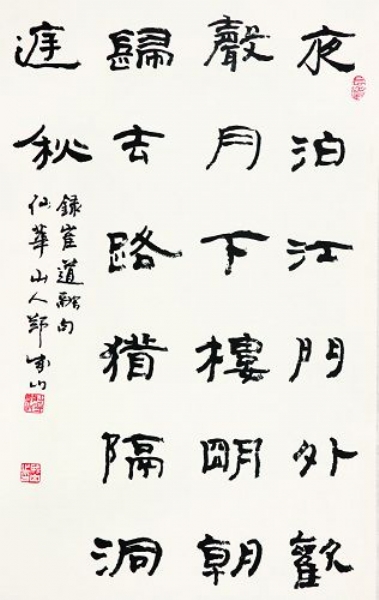 夜泊江門外歡
聲月下樓明朝
歸去路猶隔洞
庭秋
錄崔道融句
仙華山人鄭